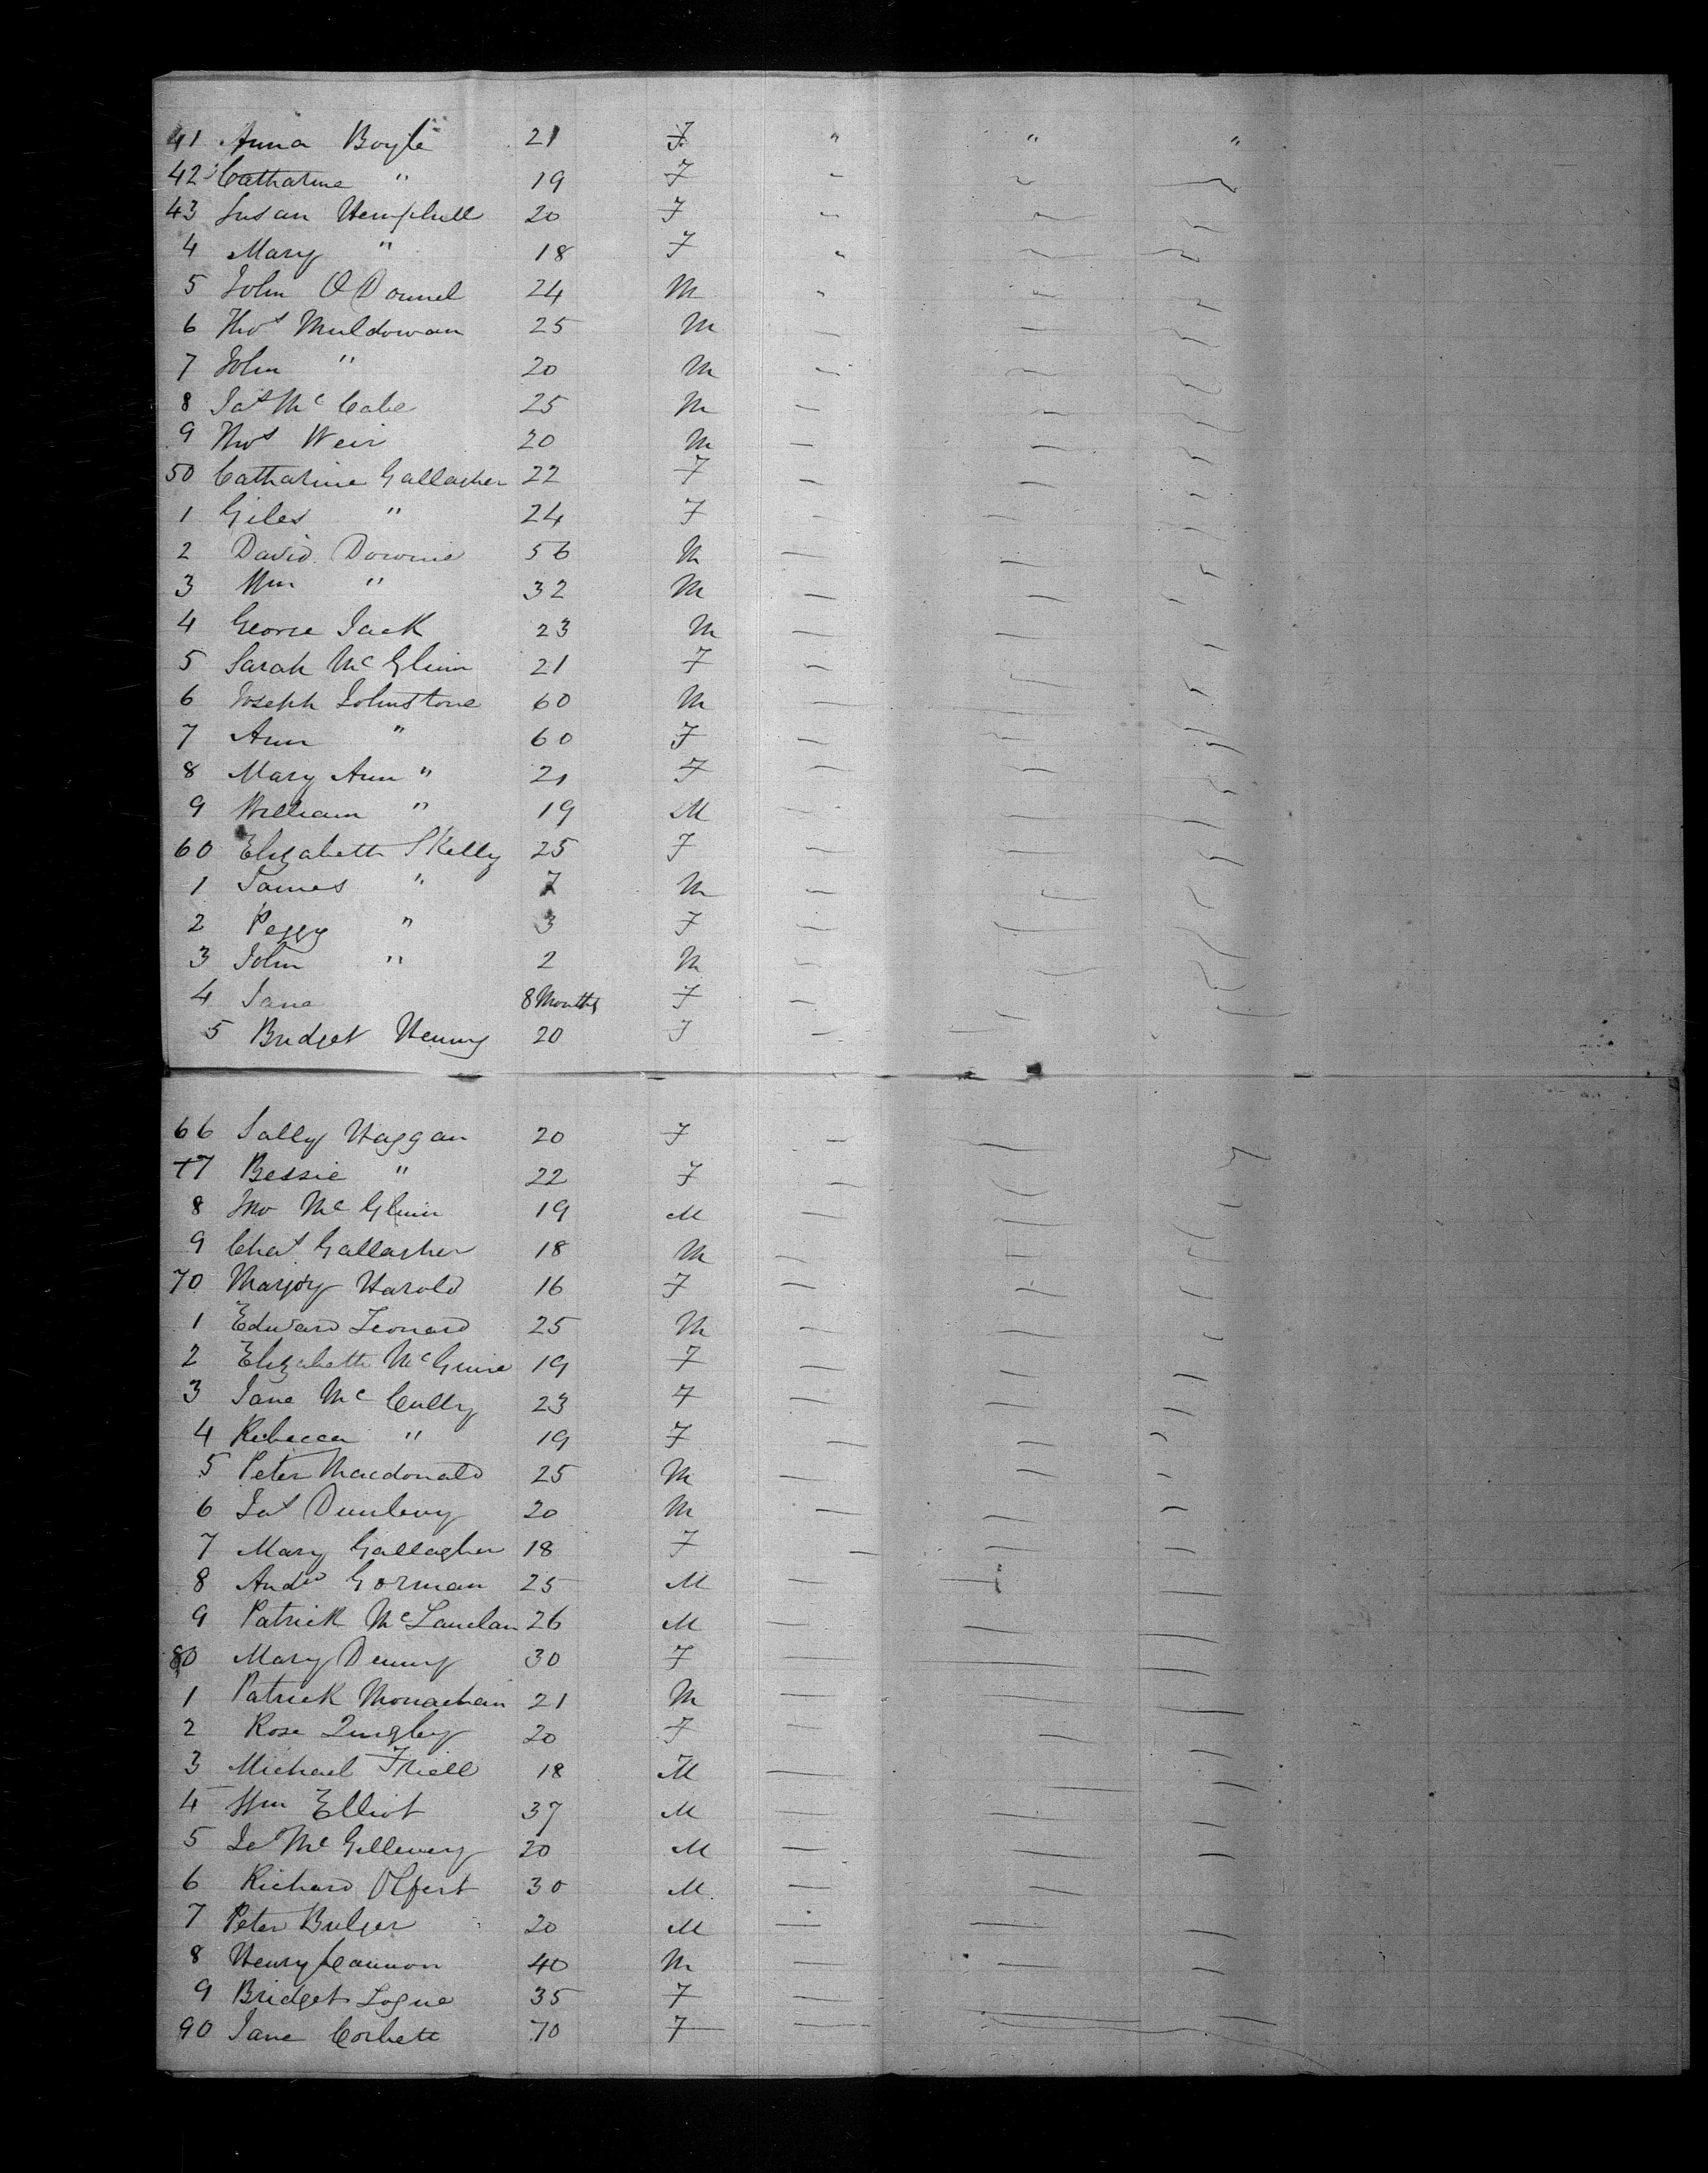 41 Anna Boyle 21 F " " "
42 Catharine " 19 F
43 Susan Hemphill 20 F
4 Mary " 18 F
5 John O Donnel 24 M
6 Thos Muldowan 25 M
7 John " 20 M
8 Jas Mc Cabe 25 M
9 Thos Weir 20 M
50 Catharine Gallagher 22 F
1 Giles " 24 F
2 David Downie 56 M
3 Wm " 32 M
4 George Jack 23 M
5 Sarah Mc Glinn 21 F
6 Joseph Johnstone 60 M
7 Ann " 60 F
8 Mary Ann " 21 F
9 William " 19 M
60 Elizabeth Skelly 25 F
1 James " 7 M
2 Peggy " 3 F
3 John " 2 M
4 Jane 8 Months F
5 Bridget Henny 20 F
66 Sally Haggan 20 F
7 Bessie " 22 F
8 Jno Mc Glinn 19 M
9 Chas Gallagher 18 M
70 Marjory Harold 16 F
1 Edward Leonard 25 M
2 Elizabeth McGuire 19 F
3 Jane Mc Cully 23 F
4 Rebecca " 19 F
5 Peter Macdonald 25 M
6 Jas Dunlevy 20 M
7 Mary Gallagher 18 F
8 Andw Gorman 25 M
9 Patrick McLanclan 26 M
80 Mary Denny 30 F
1 Patrick Monachan 21 M
2 Rose Quigley 20 F
3 Michael Friell 18 M
4 Wm Elliot 37 M
5 Mc Gillevery 20 M
6 Richard Olfert 30 M
7 Peter Bulger 20 M
8 Henry Cannon 40 M
9 Bridget Logue 35 F
90 Jane Corbett 70 F